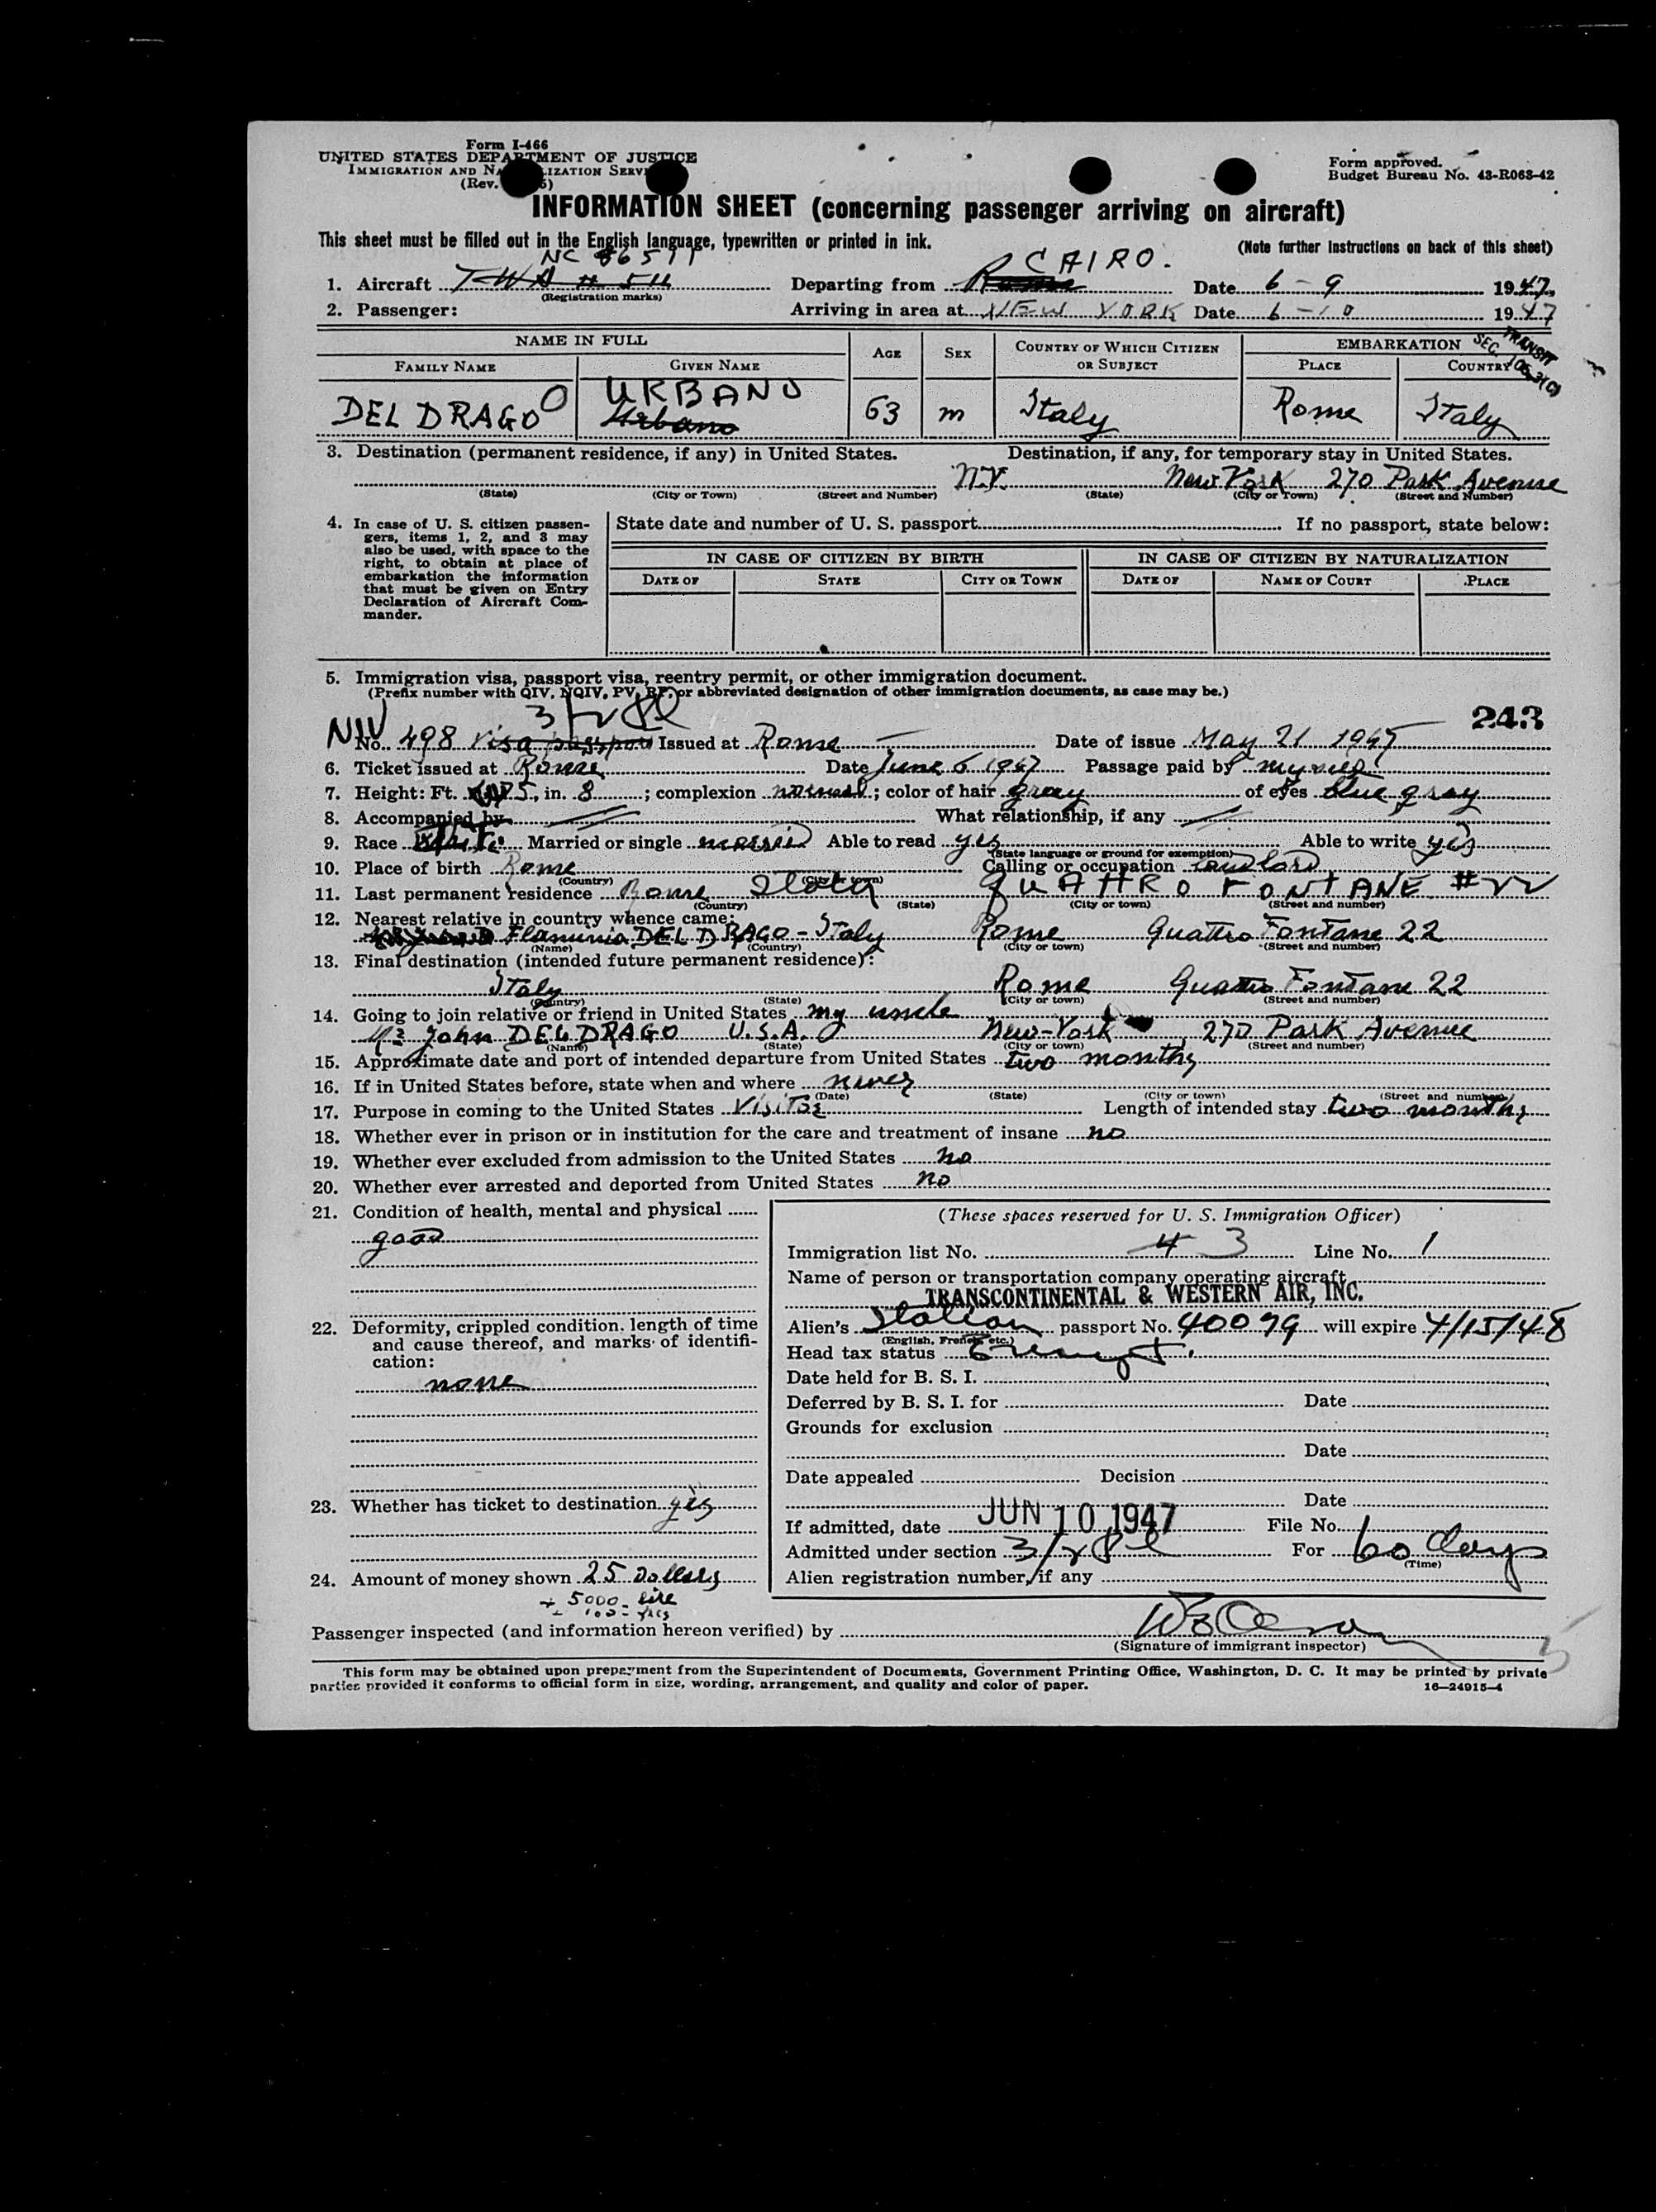 Form I-466
UNITED STATES DEPARTMENT OF JUSTICE
IMMIGRATION AND NATURALIZATION SERVICE
(Rev.
Form approved.
Budget Bureau No. 43-R063-42
INFORMATION SHEET (concerning passenger arriving on aircraft)
This sheet must be filled out in the English language, typewritten or printed in ink.
(Note further instructions on back of this sheet)
NC 86511
CAIRO.
1. Aircraft TWA Departing from Rome Date 6-9 1947
(Registration marks)
2. Passenger: Arriving in area at NEW YORK Date 6-10 1947
TRANSIT
SEC. 105.3(C)
NAME IN FULL AGE SEX COUNTRY OF WHICH CITIZEN OR SUBJECT EMBARKATION
FAMILY NAME GIVEN NAME PLACE COUNTRY
URBANO
DEL DRAGO Urbano 63 m Italy Rome Italy
3. Destination (permanent residence, if any) in United States. Destination, if any, for temporary stay in United States.
N.Y. New York 270 Park Avenue
(State) (City or Town) (Street and Number) (State) (City or Town) (Street and Number)
4. In case of U. S. citizen passen-
gers, items 1, 2, and 3 may
also be used, with space to the
right, to obtain at place of
embarkation the information
that must be given on Entry
Declaration of Aircraft Com-
mander.
State date and number of U. S. passport If no passport, state below:
IN CASE OF CITIZEN BY BIRTH IN CASE OF CITIZEN BY NATURALIZATION
DATE OF STATE CITY OR TOWN DATE OF NAME OF COURT PLACE
5. Immigration visa, passport visa, reentry permit, or other immigration document.
(Prefix number with QIV, NQIV, PV, RP, or abbreviated designation of other immigration documents, as case may be.)
243
NIV 3/2
No. 498 visa passport Issued at Rome Date of issue May 21 1947
6. Ticket issued at Rome Date June 6 1947 Passage paid by myself
7. Height: Ft. 5, in. 8; complexion normal; color of hair gray of eyes blue gray
8. Accompanied by What relationship, if any
9. Race White Married or single married Able to read yes Able to write yes
(State language or ground for exemption)
10. Place of birth Rome Calling or occupation landlord
(Country) (City or town)
11. Last permanent residence Rome Italy QUATTRO FONTANE #22
(Country) (State) (City or town) (Street and number)
12. Nearest relative in country whence came:
Flaminia DEL DRAGO - Italy Rome Quattro Fontane 22
(Name) (Country) (City or town) (Street and number)
13. Final destination (intended future permanent residence):
Italy Rome Quattro Fontane 22
(Country) (State) (City or town) (Street and number)
14. Going to join relative or friend in United States my uncle
Mr John DEL DRAGO U.S.A. New-York 270 Park Avenue
(Name) (State) (City or town) (Street and number)
15. Approximate date and port of intended departure from United States two months
16. If in United States before, state when and where never
(Date) (State) (City or town) (Street and number)
17. Purpose in coming to the United States Visitor Length of intended stay two months
18. Whether ever in prison or in institution for the care and treatment of insane no
19. Whether ever excluded from admission to the United States no
20. Whether ever arrested and deported from United States no
21. Condition of health, mental and physical
good
22. Deformity, crippled condition. length of time
and cause thereof, and marks of identifi-
cation:
none
23. Whether has ticket to destination yes
24. Amount of money shown 25 Dollars
+ 5000 - lire
(These spaces reserved for U. S. Immigration Officer)
Immigration list No. 4 3 Line No. 1
Name of person or transportation company operating aircraft
TRANSCONTINENTAL & WESTERN AIR, INC.
Alien's Italian passport No. 40099 will expire 4/15/48
(English, French, etc.)
Head tax status Exempt.
Date held for B. S. I.
Deferred by B. S. I. for Date
Grounds for exclusion
Date
Date appealed Decision
Date
If admitted, date JUN 10 1947 File No.
Admitted under section 3/2 For 60 days
(Time)
Alien registration number, if any
Passenger inspected (and information hereon verified) by
(Signature of immigrant inspector)
This form may be obtained upon prepayment from the Superintendent of Documents, Government Printing Office, Washington, D. C. It may be printed by private
parties provided it conforms to official form in size, wording, arrangement, and quality and color of paper.
16-24915-4